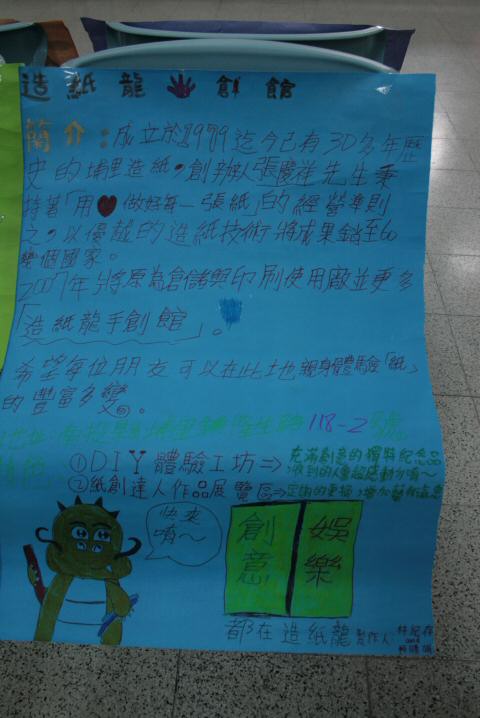 造紙龍 創館
簡介:成立於1979迄今已有30多年歷
史的埔里造紙,創辦人張慶祥先生秉
持著「用 做好每一張紙」的經營準則
之,以優越的造紙技術將成果銷至60
幾個國家。
2007年將原為倉儲與印刷使用廠並更多
「造紙龍手創館」。
希望每位朋友可以在此地親身體驗「紙」
的豐富多變。
118-2號
①DIY體驗工坊⇒充滿創意的獨特紀念品
收到的人會超感動的唷~
②紙創達人作品展覽區⇒定期的更換,增加藝術涵養
快來
唷~
創意 娛樂
都在造紙龍 製作人:
and